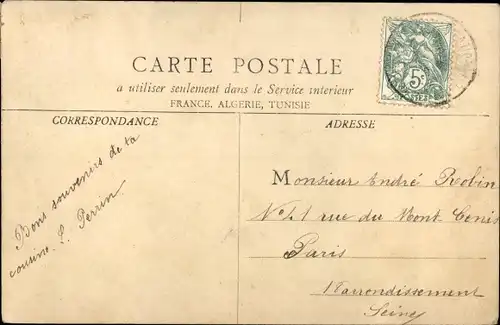 CARTE POSTALE
a utiliser seulement dans le Service interieur
FRANCE, ALGERIE, TUNISIE
CORRESPONDANCE
ADRESSE
5c
Bons souvenirs de ta
cousine L. Perrin
Monsieur André Robin
rue du Mont Cenis
Paris
arrondissement
Seine